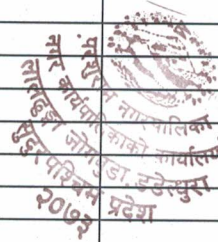 परशुराम नगरपालिका
नगर कार्यपालिकाको कार्यालय
जोगबुडा डडेल्धुरा
सुदूर पश्चिम प्रदेश
२०७३